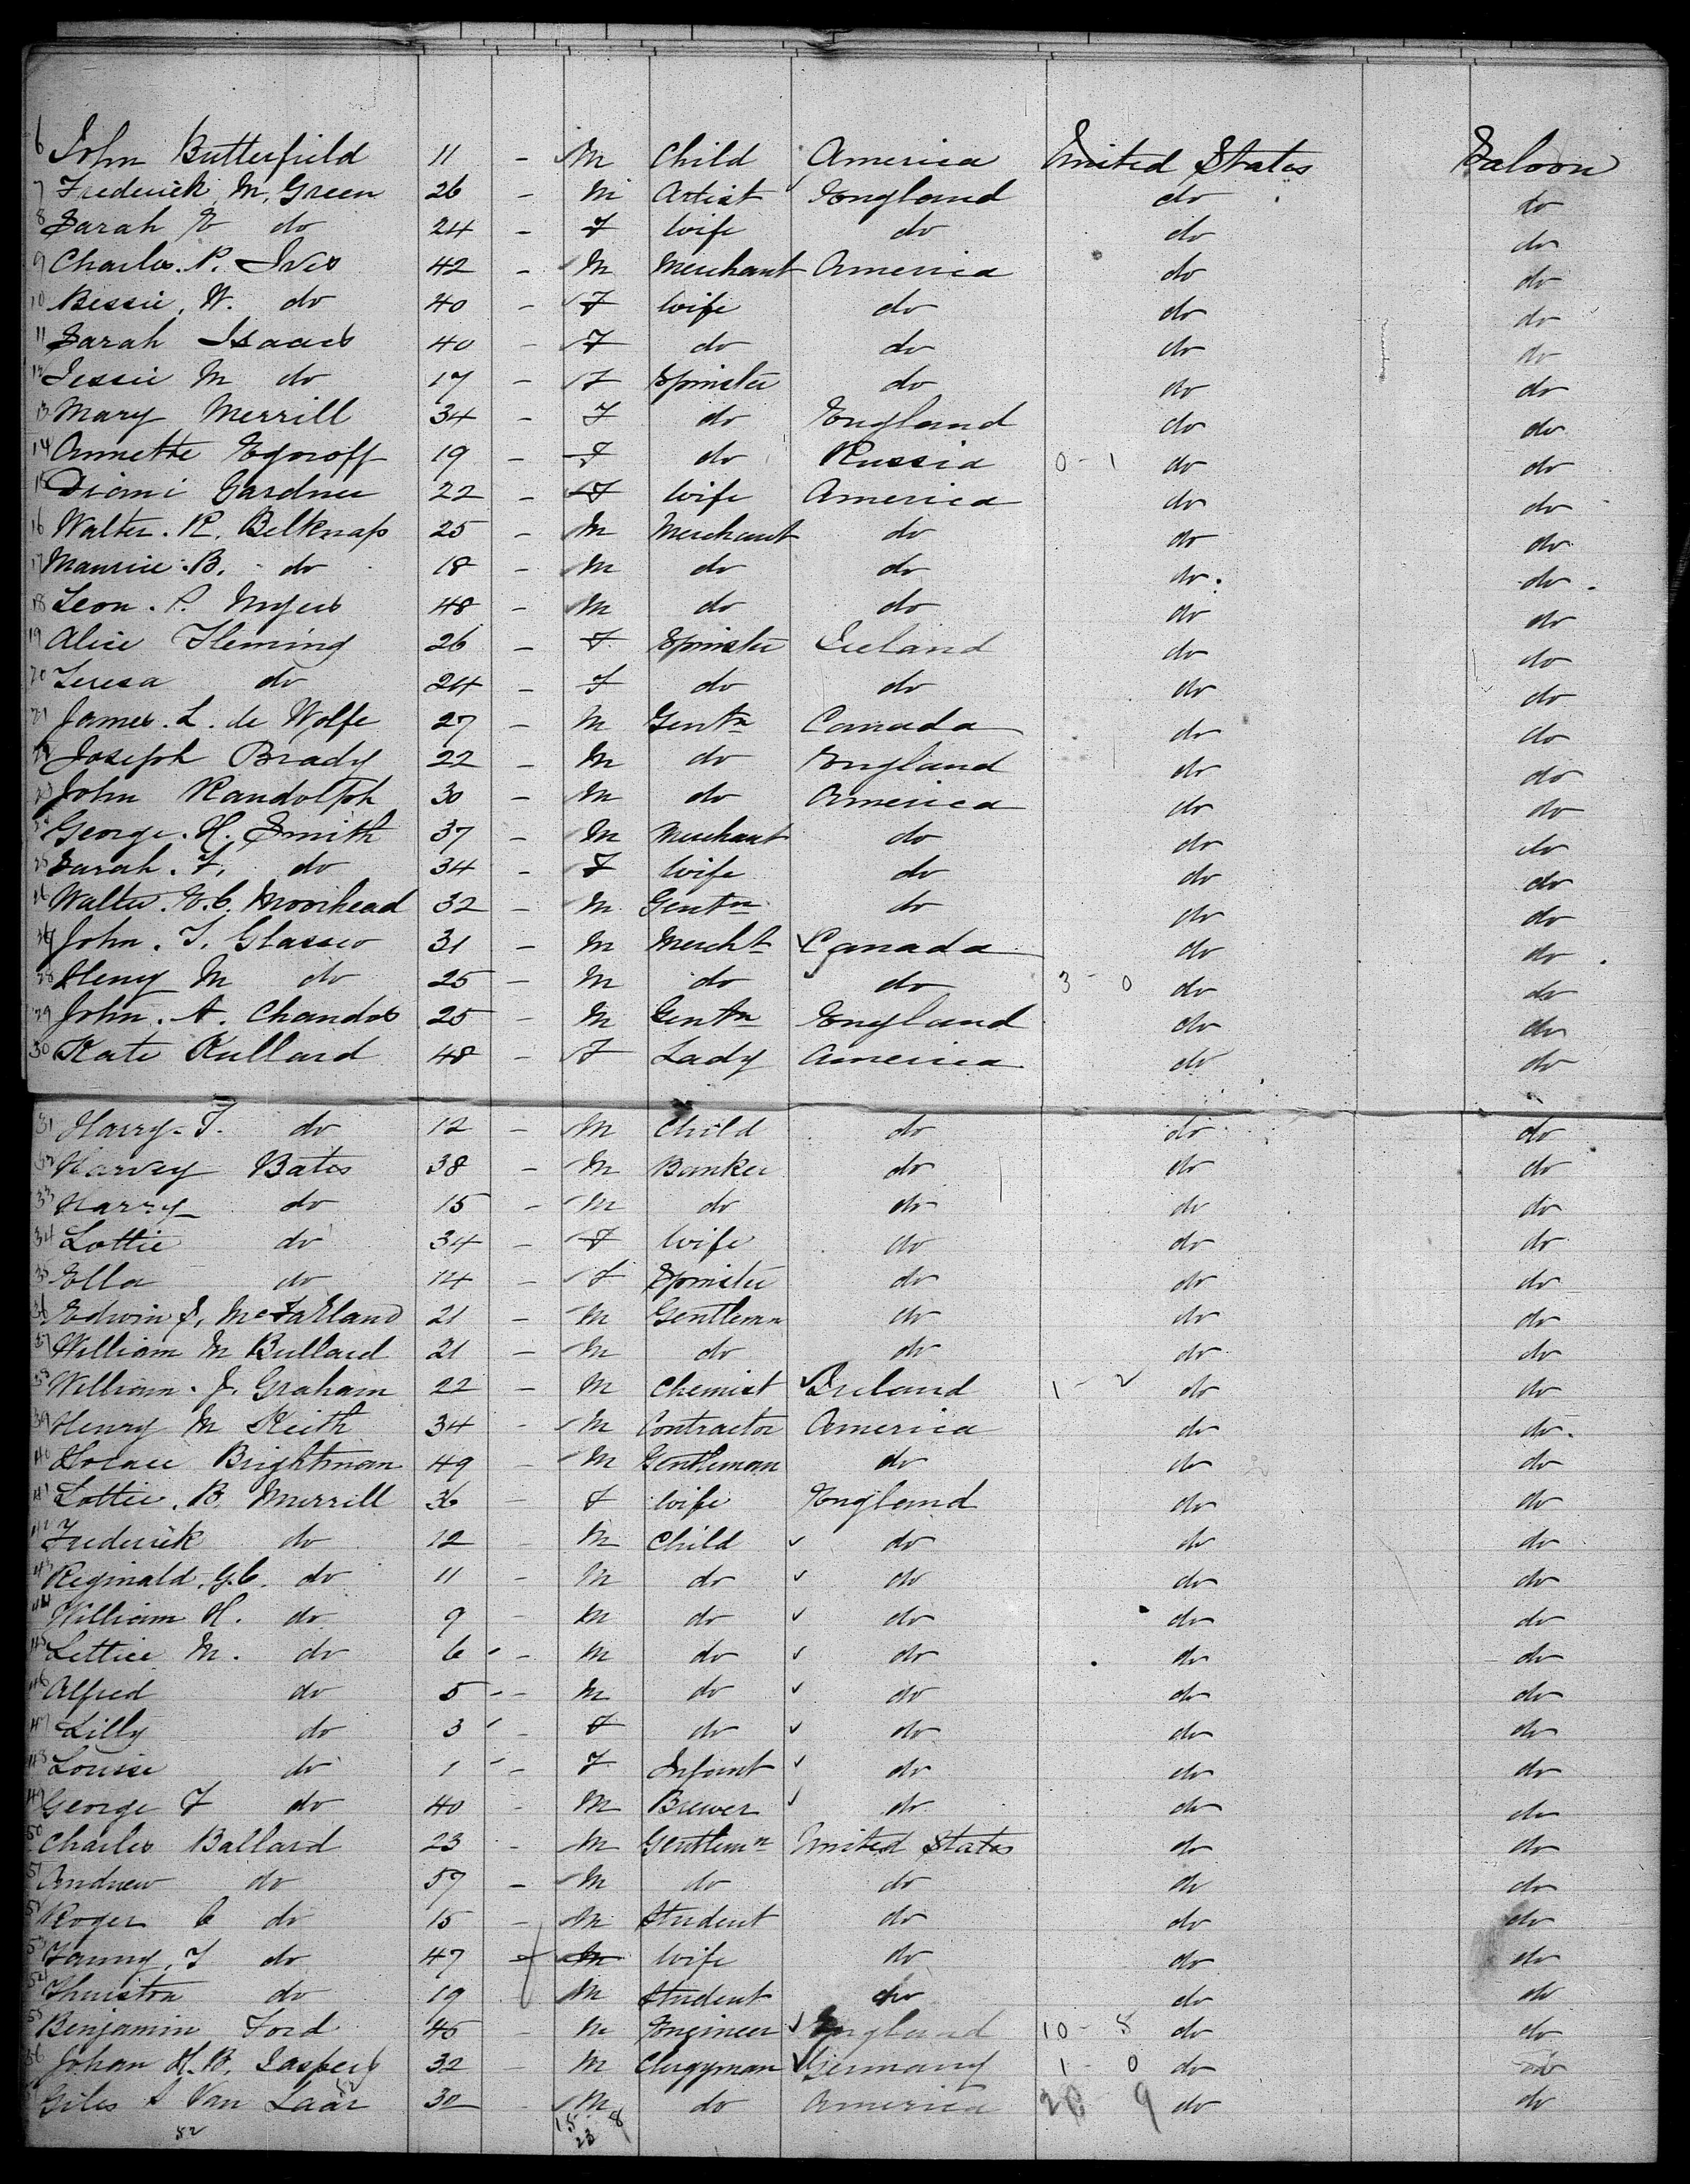 6 John Butterfield 11 - M Child America United States Saloon
7 Frederick M. Green 26 - M Artist England do do
8 Sarah E do 24 - F Wife do do do
9 Charles P. Ives 42 - M Merchant America do do
10 Bessie W. do 40 - F Wife do do do
11 Sarah Isaacs 40 - F do do do do
12 Jessie M do 17 - F Spinster do do do
13 Mary Merrill 34 - F do England do do
14 Annette Egoroff 19 - F do Russia 0 - 1 do do
15 Gardner 22 - F Wife America do do
16 Walter. R. Belknap 25 - M Merchant do do do
17 Maurice. B. do 18 - M do do do do
18 Leon. P. Myers 48 - M do do do do
19 Alice Fleming 26 - F Spinster Ireland do do
20 Teresa do 24 - F do do do do
21 James. L. de Wolfe 27 - M Gentn Canada do do
22 Joseph Brady 22 - M do England do do
23 John Randolph 30 - M do America do do
24 George. H. Smith 37 - M Merchant do do do
25 Sarah. F. do 34 - F Wife do do do
26 Walter. E. C. Moorhead 32 - M Gentn do do do
John. T. Glassco 31 - M Mercht Canada do do
28 Henry M do 25 - M do do 3 - 0 do do
29 John. A. Chandos 25 - M Gentn England do do
30 Kate 48 - F Lady America do do
31 Harry. T. do 12 - M Child do do do
32 Harvey Bates 38 - M Banker do do do
33 Harry do 15 - M do do do do
34 Lottie do 34 - F Wife do do do
35 Ella do 14 - F Spinster do do do
36 Edwin S. McFarland 21 - M Gentleman do do do
37 William M Bullard 21 - M do do do do
38 William. J. Graham 22 - M Chemist Ireland 1 - 2 do do
39 Henry M Keith 34 - M Contractor America do do
40 Horace Brightman 49 - M Gentleman do do do
41 Lottie. B. Merrill 36 - F Wife England do do
42 Frederick do 12 - M Child do do do
43 Reginald. G. C. do 11 - M do do do do
44 William H. do 9 - M do do do do
45 Lettice M. do 6 - M do do do do
46 Alfred do 5 - M do do do do
47 Lilly do 3 - F do do do do
48 Louise do 1 - F Infant do do do
49 George F do 40 - M Brewer do do do
50 Charles Ballard 23 - M Gentlemn United States do do
51 Andrew do 57 - M do do do do
52 Roger C do 15 - M Student do do do
53 Fanny. F do 47 - M Wife do do do
54 Thurston do 19 M Student do do do
55 Benjamin Ford 45 - M Engineer England 10 - 8 do do
56 Johan H. B. Jaspers 32 - M Clergyman Germany 1 - 0 do do
Giles S Van Laar 30 - M do America 26 9 do do
52 15 8
23